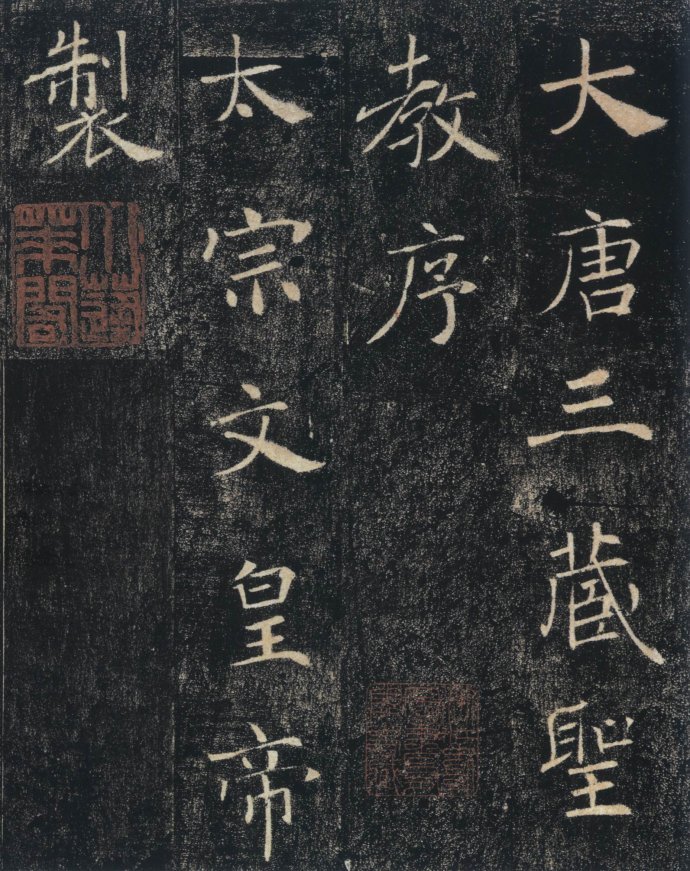 大唐三藏聖
教序
太宗文皇帝
製